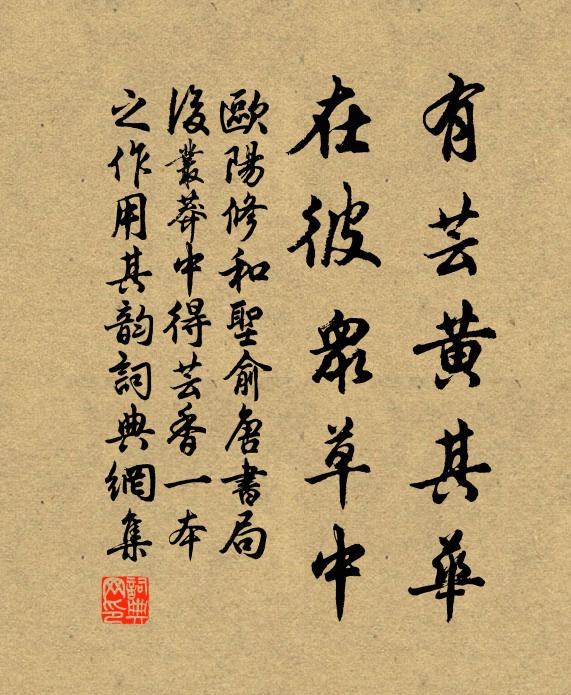 有芸黄其華
在彼眾草中
歐陽修和聖俞唐書局
後叢莽中得芸香一本
之作用其韵詞典網集
詞典网印